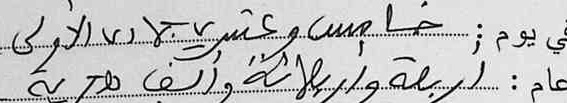 في يوم : خامس وعشرين جمادى الأولى
عام : أربعة وأربعمائة وألف هجرية